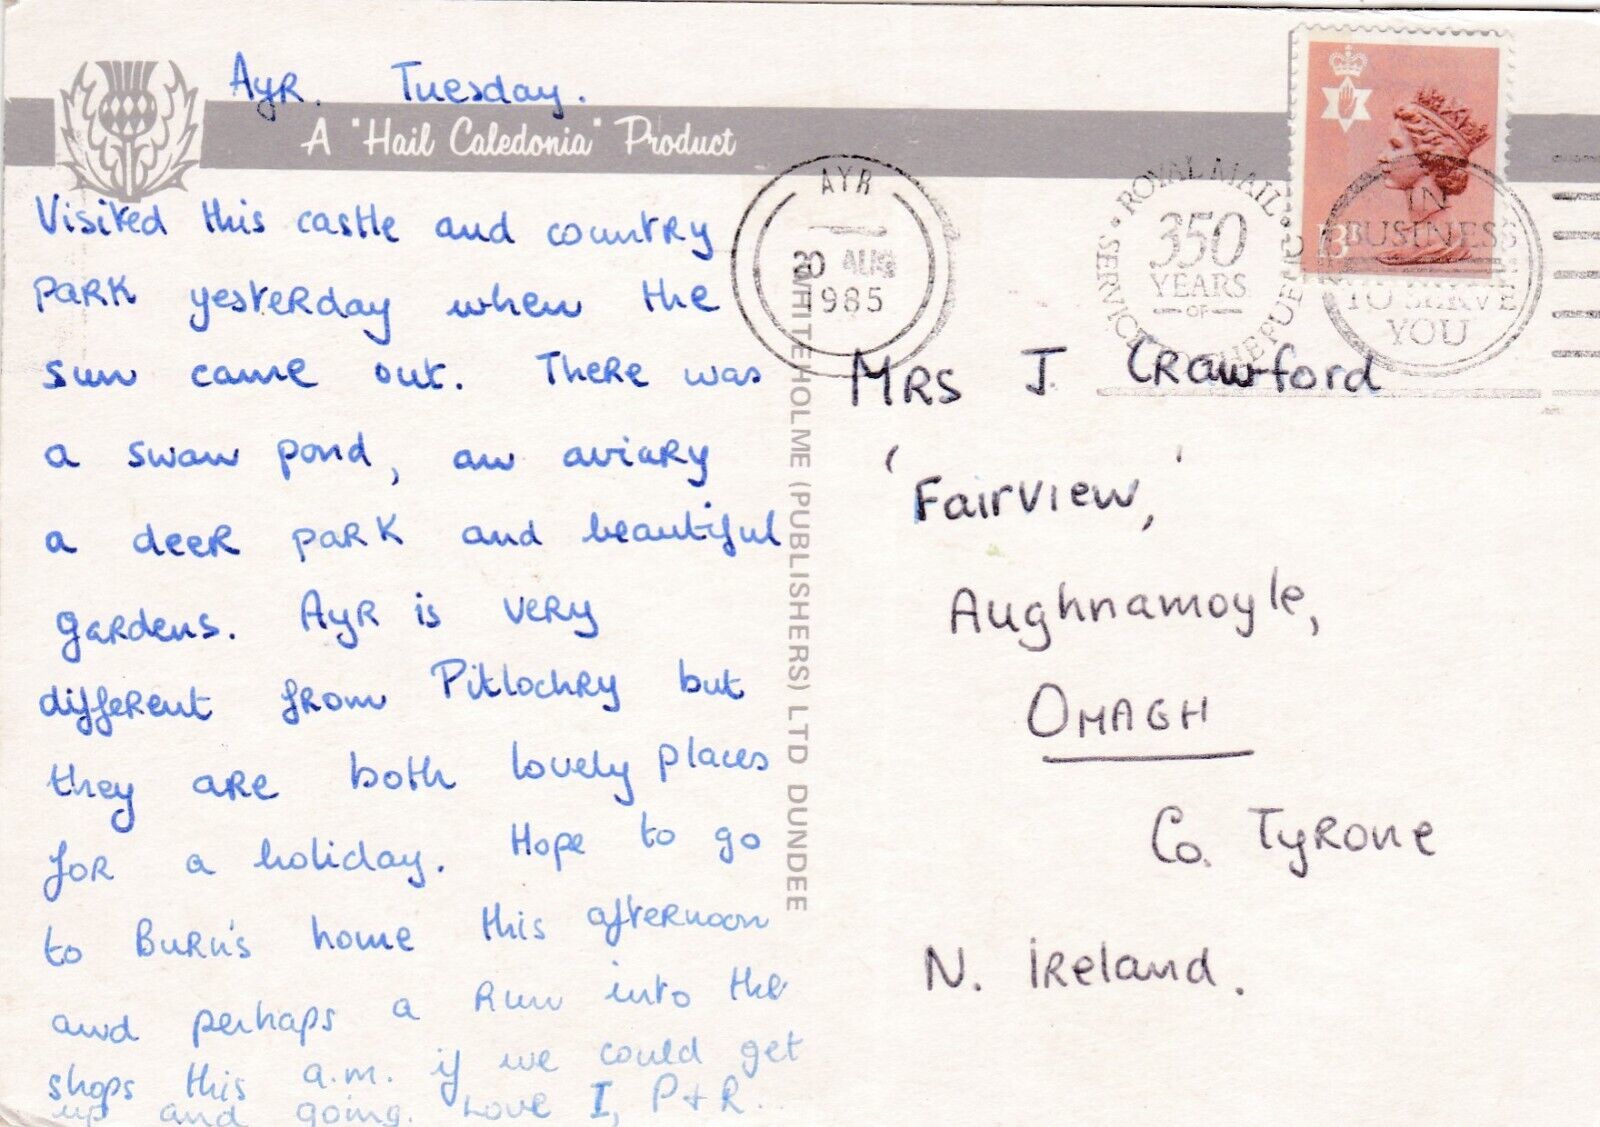 Ayr. Tuesday.
A "Hail Caledonia" Product
Visited this castle and country
park yesterday when the
sun came out. There was
a swan pond, an aviary
a deer park and beautiful
gardens. Ayr is very
different from Pitlochry but
they are both lovely places
for a holiday. Hope to go
to Burn's home this afternoon
and perhaps a run into the
shops this a.m. if we could get
up and going. Love I, P + R.
WHITEHOLME (PUBLISHERS) LTD DUNDEE
AYR
20 AUG
1985
ROYAL MAIL
350
YEARS
OF
SERVICE TO THE PUBLIC
IN
BUSINESS
TO SERVE
YOU
Mrs J Crawford
'Fairview,'
Aughnamoyle,
OMAGH
Co. Tyrone
N. Ireland.